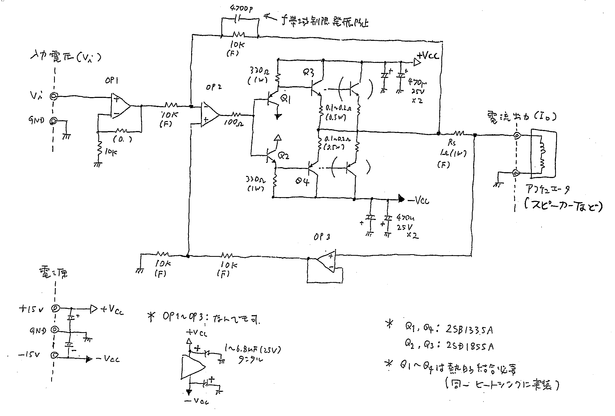 4700P
f特 制限 発振防止
入力電圧(Vi)
10K
(F)
+Vcc
330Ω
(1W)
Q3
OP1
OP2
Q1
470μ
25V
×2
Vi
GND
(0.)
10K
10K
(F)
100Ω
0.1~0.2Ω
(0.5W)
電流出力(Io)
Q2
0.1~0.2Ω
(0.5W)
Rs
(F)
330Ω
(1W)
Q4
-Vcc
470μ
25V
×2
アクチュエータ
(スピーカーなど)
OP3
10K
(F)
10K
(F)
電源
+15V
+Vcc
GND
-15V
-Vcc
* OP1~OP3:なんでも可.
+Vcc
1~6.8μF(25V)
タンタル
-Vcc
* Q1, Q4: 2SB1335A
Q2, Q3: 2SD1855A
* Q1~Q4は熱的結合必要
(同一ヒートシンクに実装)